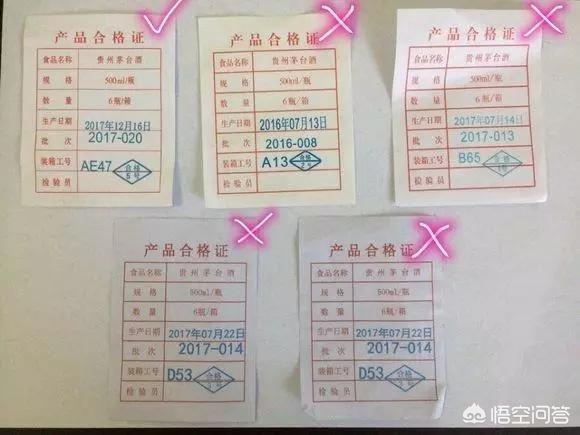 产品合格证
食品名称 贵州茅台酒
规格 500ml/瓶
数量 6瓶/箱
生产日期 2017年12月16日
批次 2017-020
装箱工号 AE47 合格 5号
检验员
产品合格证
食品名称 贵州茅台酒
规格 500ml/瓶
数量 6瓶/箱
生产日期 2016年07月13日
批次 2016-008
装箱工号 A13 合格
检验员
产品合格证
食品名称 贵州茅台酒
规格 500ml/瓶
数量 6瓶/箱
生产日期 2017年07月14日
批次 2017-013
装箱工号 B65 合格
检验员
产品合格证
食品名称 贵州茅台酒
规格 500ml/瓶
数量 6瓶/箱
生产日期 2017年07月22日
批次 2017-014
装箱工号 D53 合格
检验员
产品合格证
食品名称 贵州茅台酒
规格 500ml/瓶
数量 6瓶/箱
生产日期 2017年07月22日
批次 2017-014
装箱工号 D53 合格
检验员
悟空问答